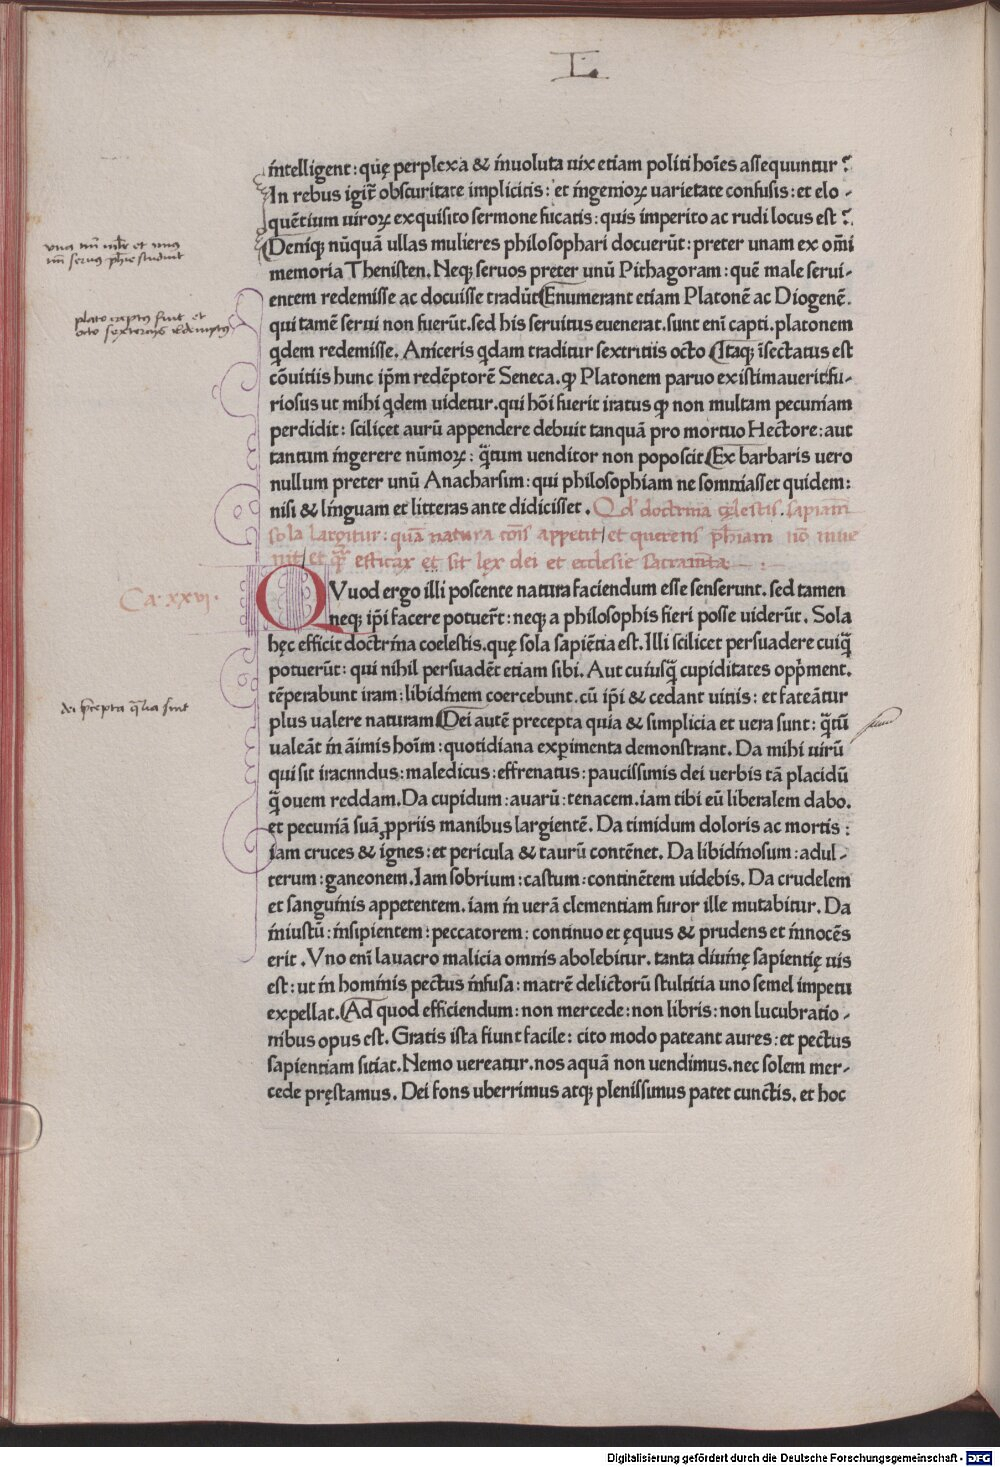 L.
intelligent: quę perplexa & inuoluta uix etiam politi hoīes assequuntur?
In rebus igit̄ obscuritate implicitis: et ingenioꝝ uarietate confusis: et elo-
quētium uiroꝝ exquisito sermone fucatis: quis imperito ac rudi locus est?
Deniqꝫ nūquā ullas mulieres philosophari docuerūt: preter unam ex om̄i
memoria Thenisten. Neqꝫ seruos preter unū Pithagoram: quē male serui-
entem redemisse ac docuisse tradūt Enumerant etiam Platonē ac Diogenē.
qui tamē serui non fuerūt. sed his seruitus euenerat. sunt enī capti. platonem
qdem redemisse. Aniceris qdam traditur sextritiis octo Itaqꝫ īsectatus est
cōuitiis hunc ip̄m redēptorē Seneca. ꝙ Platonem paruo existimauerit fu-
riosus ut mihi qdem uidetur. qui hōi fuerit iratus ꝙ non multam pecuniam
perdidit: scilicet aurū appendere debuit tanquā pro mortuo Hectore: aut
tantum ingerere nūmoꝝ: q̄tum uenditor non poposcit Ex barbaris uero
nullum preter unū Anacharsim: qui philosophiam ne somniasset quidem:
nisi & linguam et litteras ante didicisset. Qd' doctrina cęlestis. sapiam̄
sola largitur: quā natura cōis appetit/ et querens ph̄iam nō inue
nit/ et q̄r efficax et sit lęx dei et ecclesie sacram̄ta
una tm̄ ml̄r et unus
tm̄ seruus ph̄ie studuit
plato captus fuit et
octo sextercijs redemptus
Ca. xxvi.
QVuod ergo illi poscente natura faciendum esse senserunt. sed tamen
neqꝫ ip̄i facere potuer̄t: neqꝫ a philosophis fieri posse uiderūt. Sola
hęc efficit doctrina coelestis. quę sola sapiētia est. Illi scilicet persuadere cuiq̄
potuerūt: qui nihil persuadēt etiam sibi. Aut cuiusq̄ cupiditates opp̄ment.
tēperabunt iram: libidinem coercebunt. cū ip̄i & cedant uitiis: et fateātur
plus ualere naturam Dei autē precepta quia & simplicia et uera sunt: q̄tū
ualeāt in āimis hoīm: quotidiana experimenta demonstrant. Da mihi uirū
qui sit iracnndus: maledicus: effrenatus: paucissimis dei uerbis tā placidū
q̄ ouem reddam. Da cupidum: auarū: tenacem. iam tibi eū liberalem dabo.
et pecuniā suā ꝓpriis manibus largientē. Da timidum doloris ac mortis:
iam cruces & ignes: et pericula & taurū contēnet. Da libidinosum: adul-
terum: ganeonem. Iam sobrium: castum: continētem uidebis. Da crudelem
et sanguinis appetentem. iam in uerā clementiam furor ille mutabitur. Da
iniustū: insipientem: peccatorem: continuo et ęquus & prudens et innocēs
erit. Vno enī lauacro malicia omnis abolebitur. tanta diuinę sapientię uis
est: ut in hominis pectus infusa: matrē delictorū stultitia uno semel impetu
expellat. Ad quod efficiendum: non mercede: non libris: non lucubratio-
nibus opus est. Gratis ista fiunt facile: cito modo pateant aures: et pectus
sapientiam sitiat. Nemo uereatur. nos aquā non uendimus. nec solem mer-
cede pręstamus. Dei fons uberrimus atqꝫ plenissimus patet cunctis. et hoc
dei p̄cepta q̄lia sint
Digitalisierung gefördert durch die Deutsche Forschungsgemeinschaft - DFG